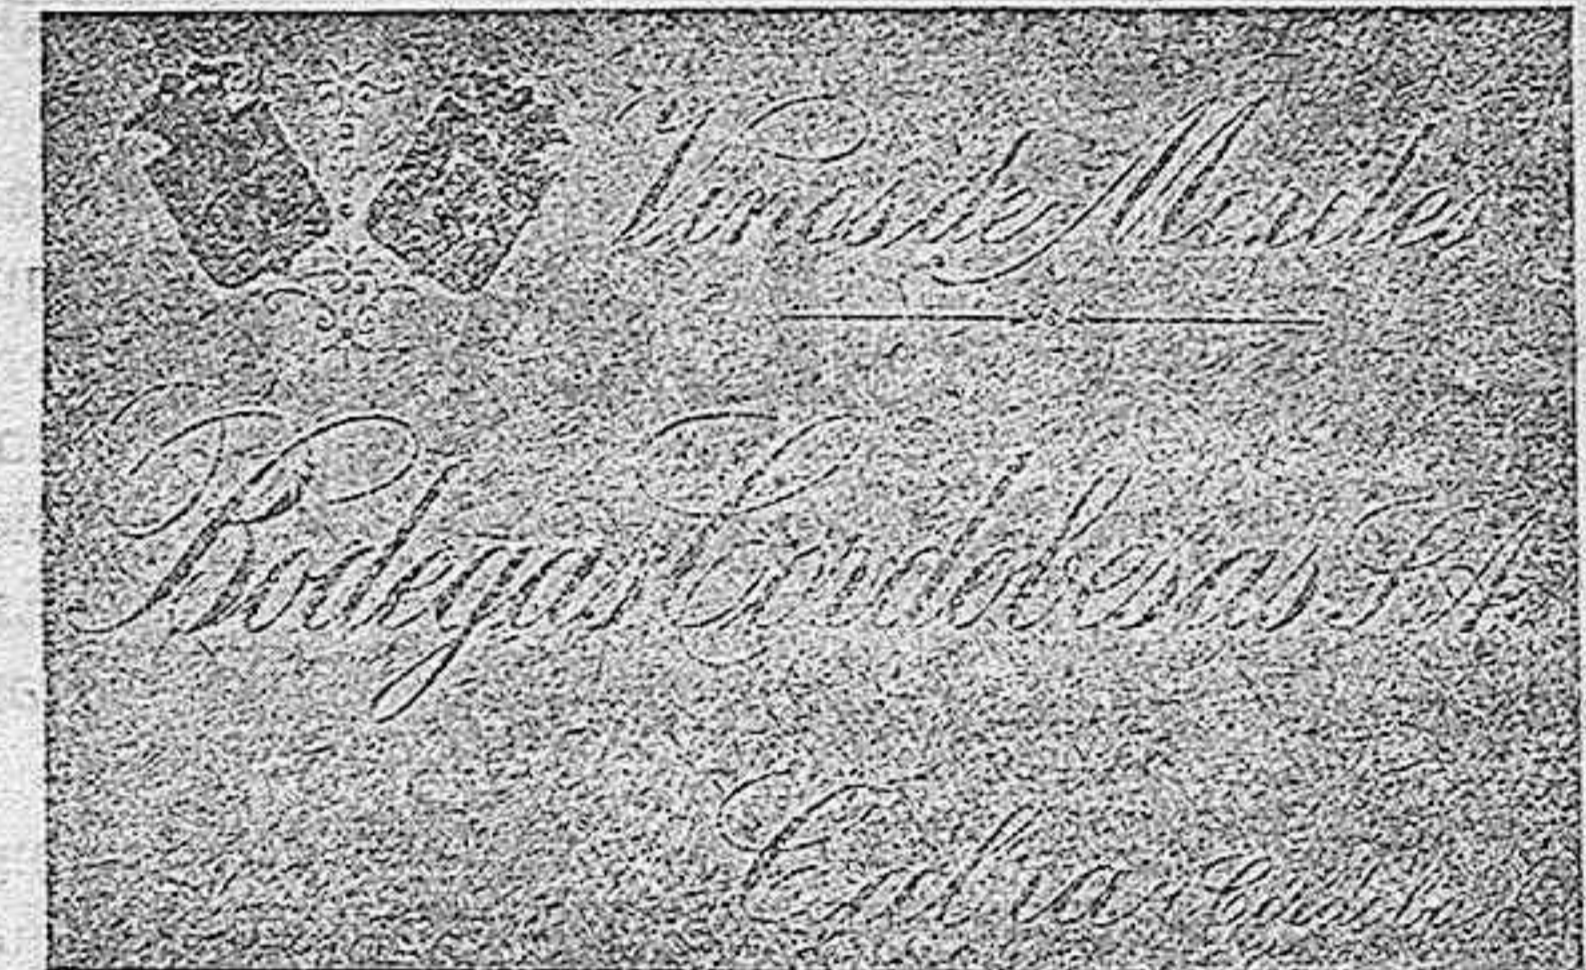 Vinos de Moriles
Bodegas Cordobesas S.A.
Cabra - Córdoba